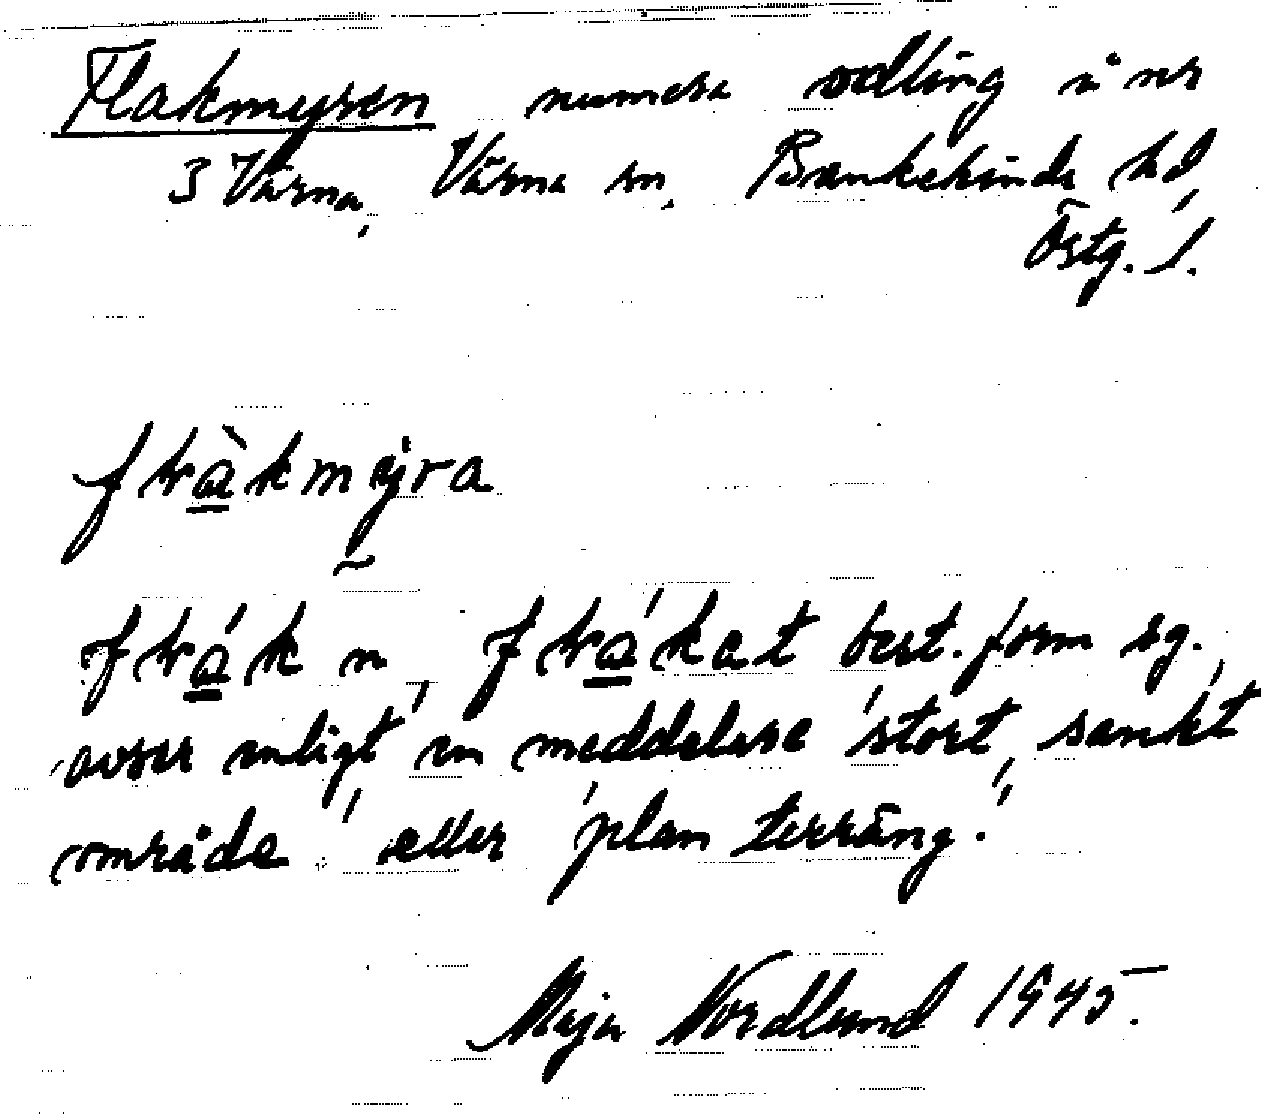 Flakmyren numera odling å nr
3 Värna, Värna sn, Bankekinds hd,
Östg. l.
flàkmy̆ra
flák n, flákat best. form sg.,
avser enligt en meddelare 'stort, sankt
område' eller 'plan terräng.'
Maja Nordlund 1945.